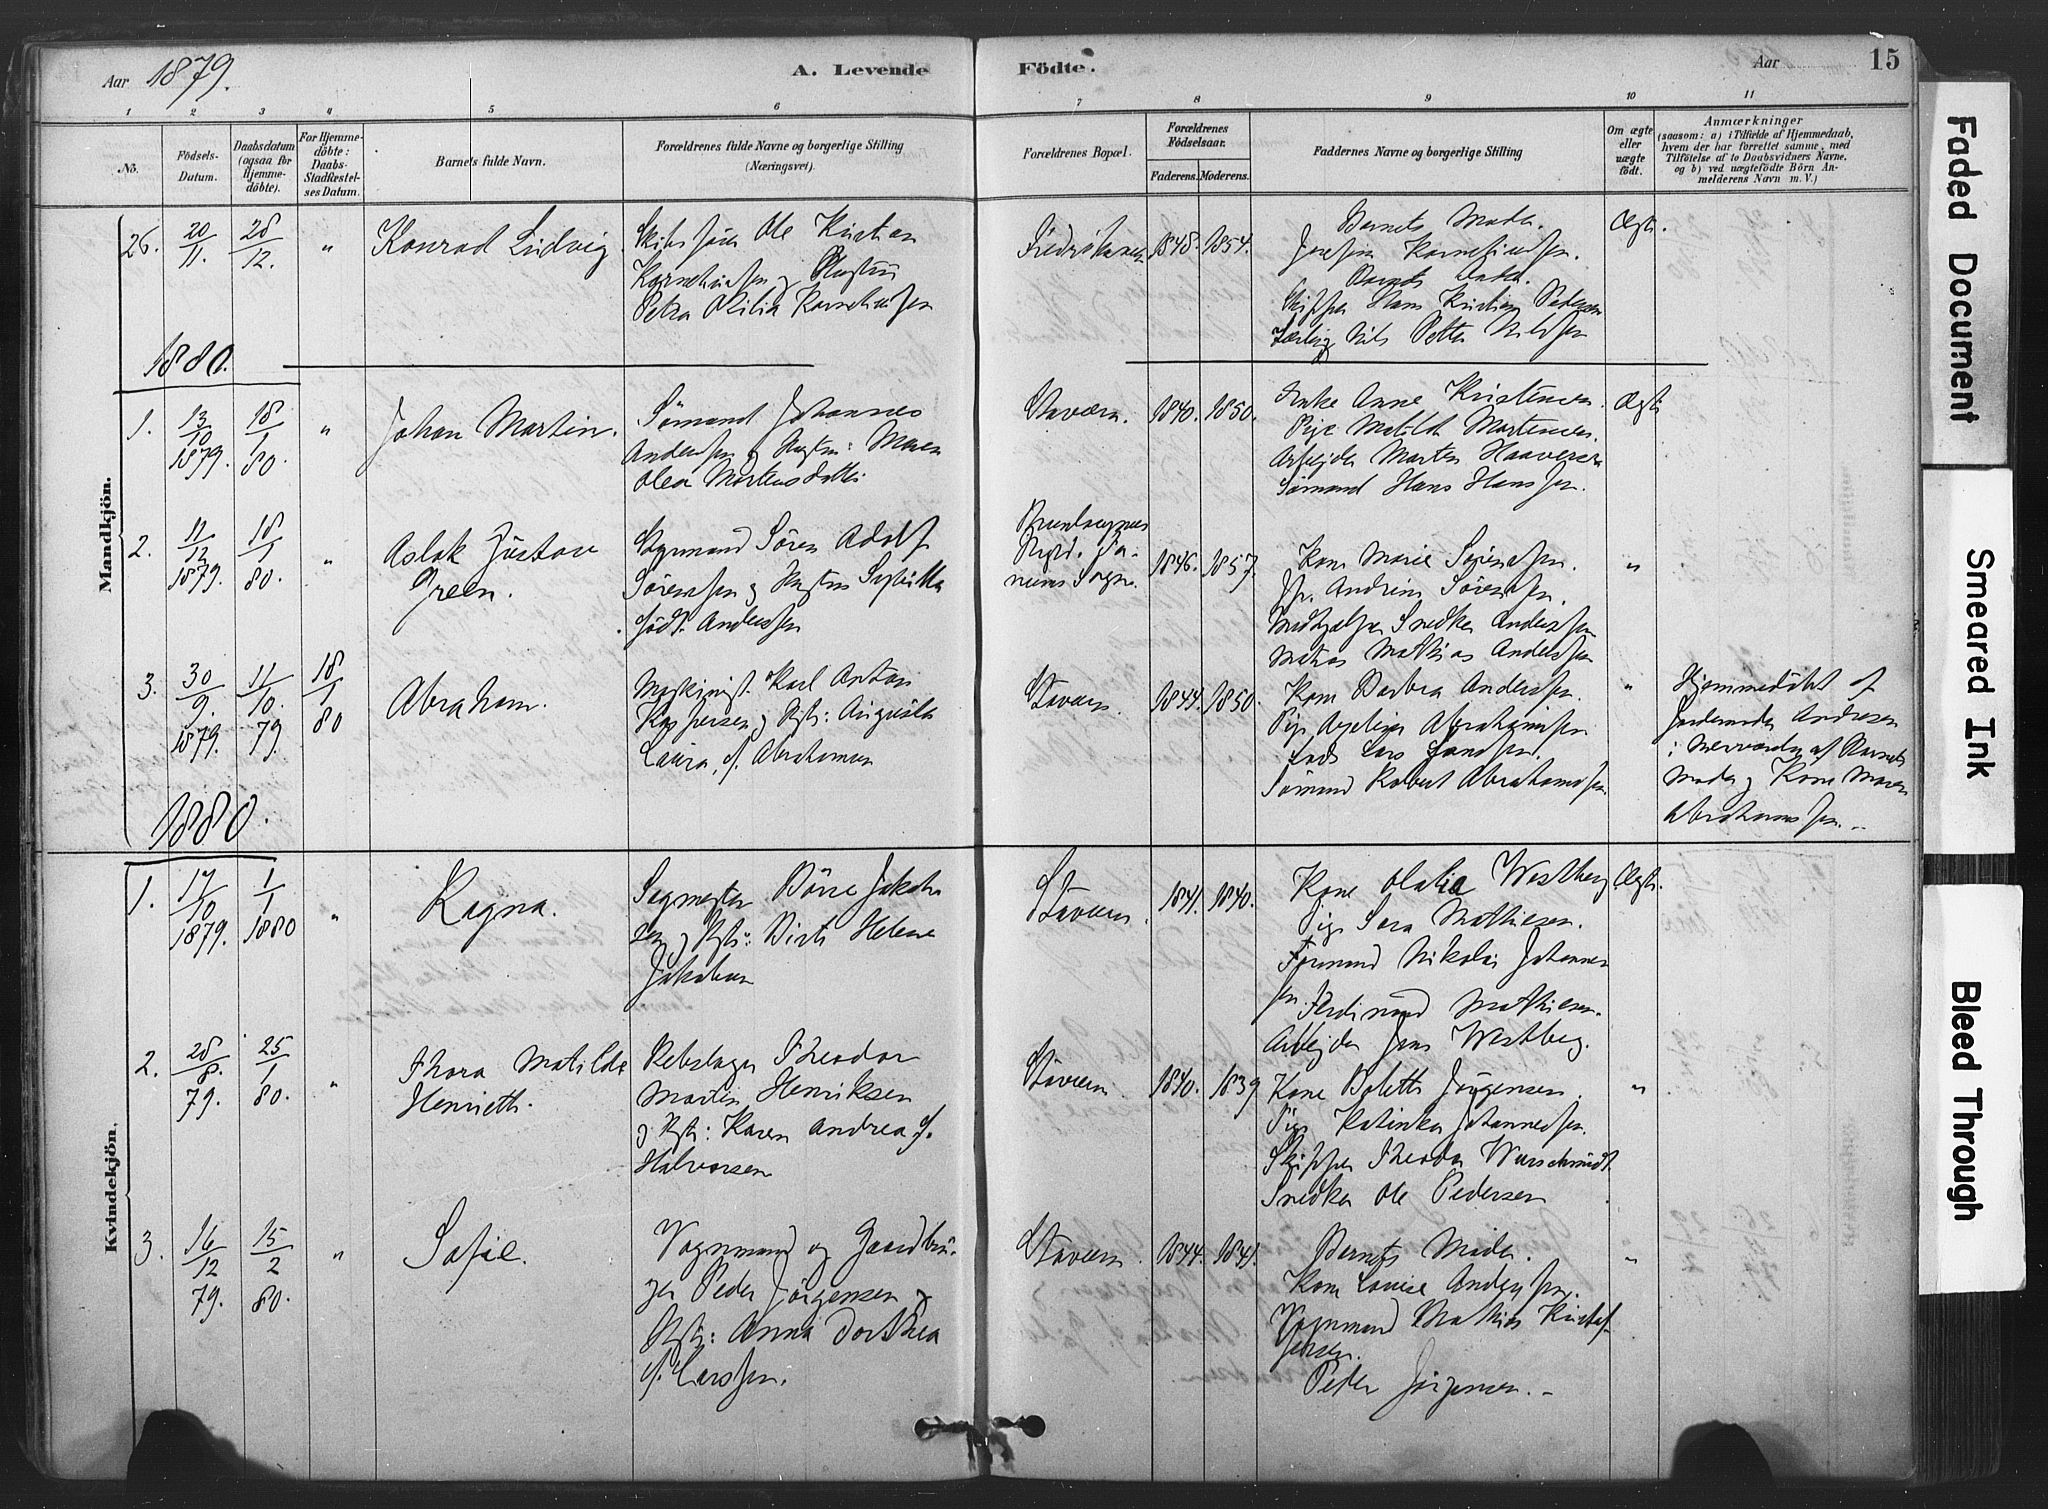 Aar 1879.
A. Levende Födte.
Aar
15
1 2 3 4 5 6 7 8 9 10 11
No.
Födsels-
Datum.
Daabsdatum
(ogsaa for
Hjemme-
döbte).
For Hjemme-
döbte:
Daabs-
Stadfæstel-
ses Datum.
Barnets fulde Navn.
Forældrenes fulde Navne og borgerlige Stilling
(Næringsvei).
Forældrenes Bopæl.
Forældrenes
Födselsaar.
Faderens. Moderens.
Faddernes Navne og borgerlige Stilling
Om ægte
eller
uægte
födt.
Anmærkninger
(saasom: a) i Tilfælde af Hjemmedaab,
hvem der har forrettet samme, med
Tilföielse af to Daabsvidners Navne,
og b) ved uægtefödte Börn An-
melderens Navn m. V.)
Mandkjön.
26. 20/11. 28/12. "
Konrad Ludvig
Ole Kristian
Petra
1848. 1854.
Barnets Moder.
Hans Kristian Pedersen
Nils Petter Nilssen
Ægte.
1880.
1. 13/10 1879. 18/1 80. "
Johan Martin.
Sömand Johannes
Anderssen og Hustru: Maren
Olea Mortensdatter
Stavern.
1840. 1850.
Enke Anne Kristensen.
Pige Matilde Martensen.
Arbeider Morten Haaversen
Sömand Hans Hanssen.
Ægte
2. 11/12 1879. 18/1 80. "
Aslak Gustav
Green.
Styrmand Sören Adolf
Sörenssen og Hustru
född. Anderssen
1846. 1857.
Kone Marie Sörenssen.
Andrine Sörenssen.
Snedker Anderssen
Mathias Anderssen
"
3. 30/9. 1879. 11/10. 79. 18/1 80
Abraham.
Maskinist Karl Anton
Kaspersen og Hstr: Augusta
Laura, f. Abrahamsen
Stavern.
1844. 1850.
Kone Barbra Anderssen.
Pige Abrahamssen
Lars
Sömand Robert Abrahamssen.
"
Hjemmedöbt af
Jordemoder Andresen
i Nærværelse af Barnets
Moder og Kone Maren
Abrahamssen.
1880.
Kvindekjön.
1. 17/10 1879. 1/1 1880 "
Ragna.
Sagmester Börre Jakob-
sen og Hstr: Birte Helene
Jakobsen
Stavern.
1841. 1840.
Kone Olalia Westberg
Pige Sara Mathiesen.
Formand Nikolai Johannes-
sen. Ferdinand Mathiesen.
Arbeider Jens Westberg.
Ægte.
2. 28/8. 79. 25/1 80. "
Thora Matilde
Henriette.
Rebslager Theodor
Martin Henriksen
og Hstr: Karen Andrea f.
Halvorsen
Stavern.
1840. 1839
Kone Bolette Jörgensen.
Pige Katinka Johannessen.
Skipper Theodor Wurschmidt.
Snedker Ole Pedersen
"
3. 16/12 79. 15/2 80. "
Sofie.
Vognmand og Gaardbru-
ger Peder Jörgensen og
Hstr: Anna Dorthea
f. Larssen.
Stavern.
1844. 1841.
Barnets Moder.
Kone Louise Anderssen.
Vognmand Mathias Kristof-
fersen.
Peder Jörgensen.
"
Faded Document
Smeared Ink
Bleed Through